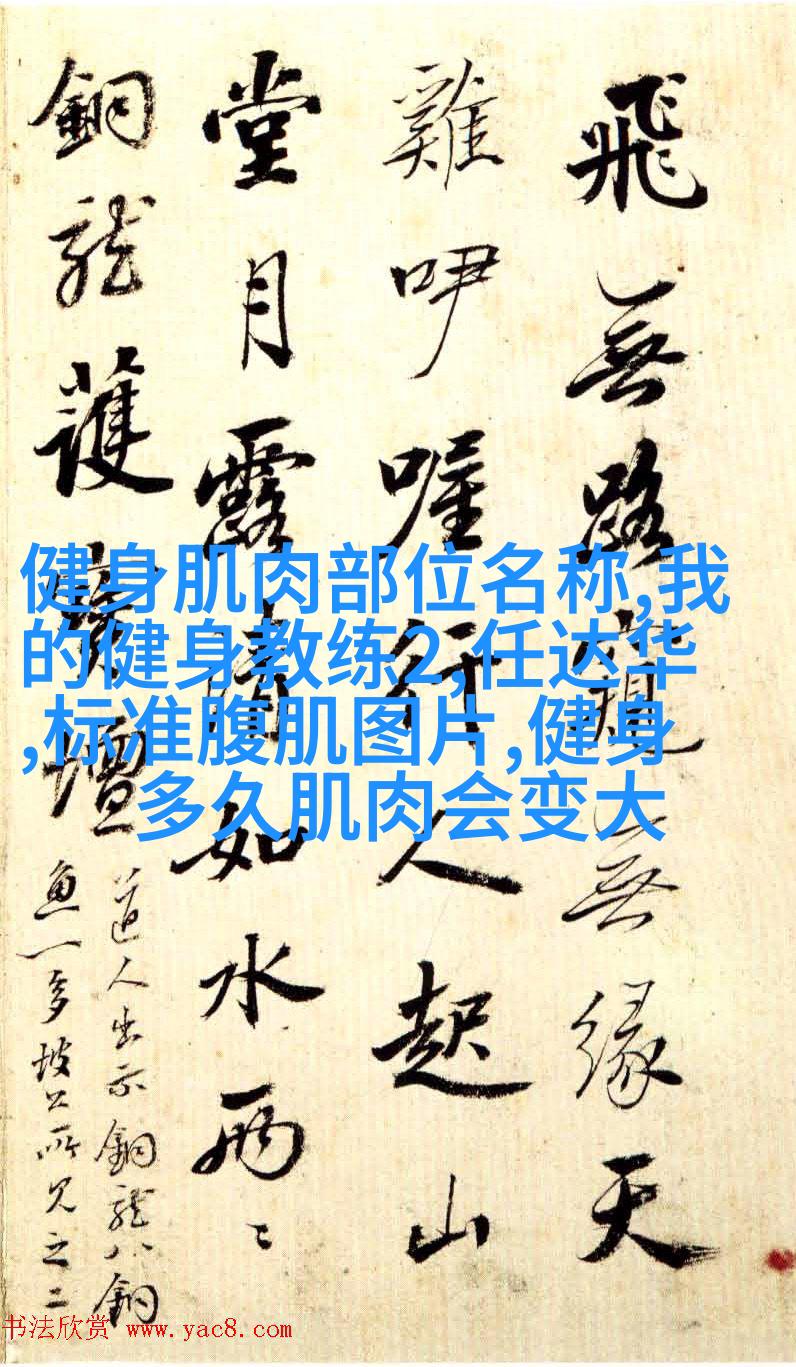 飛無路窺無緣天
雞咿喔行人起山
堂月露清如水兩〻
銅龍護寶壇
道人出示銅龍八銅
魚一多坡公所見之二
健身肌肉部位名称,我
的健身教练2,任达华
,标准腹肌图片,健身
多久肌肉会变大
书法欣赏 www.yac8.com